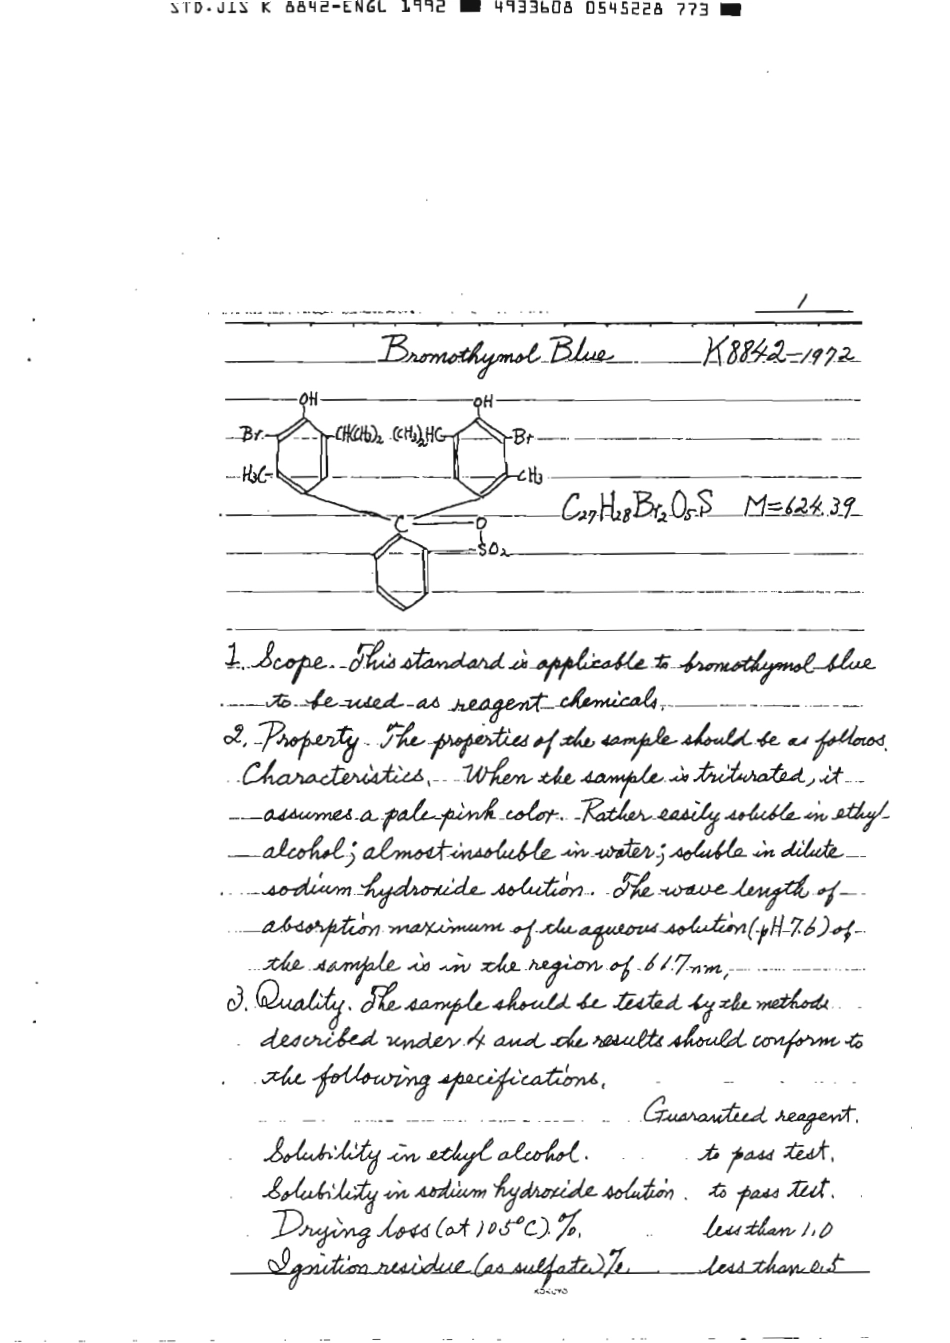 STD.JIS K 8842-ENGL 1992 ■ 4933608 0545228 773 ■
1
Bromothymol Blue K8842-1972
OH OH
Br CH(CH3)2 (CH3)2HC Br
H3C CH3
C O C27H28Br2O5S M=624.39
SO2
1. Scope. This standard is applicable to bromothymol blue
to be used as reagent chemicals.
2. Property. The properties of the sample should be as follows.
Characteristics. When the sample is triturated, it
assumes a pale pink color. Rather easily soluble in ethyl
alcohol; almost insoluble in water; soluble in dilute
sodium hydroxide solution. The wave length of
absorption maximum of the aqueous solution (pH 7.6) of
the sample is in the region of 617 nm.
3. Quality. The sample should be tested by the methods
described under 4 and the results should conform to
the following specifications.
Guaranteed reagent.
Solubility in ethyl alcohol. to pass test.
Solubility in sodium hydroxide solution. to pass test.
Drying loss (at 105°C) %. less than 1.0
Ignition residue (as sulfate) %. less than 0.5